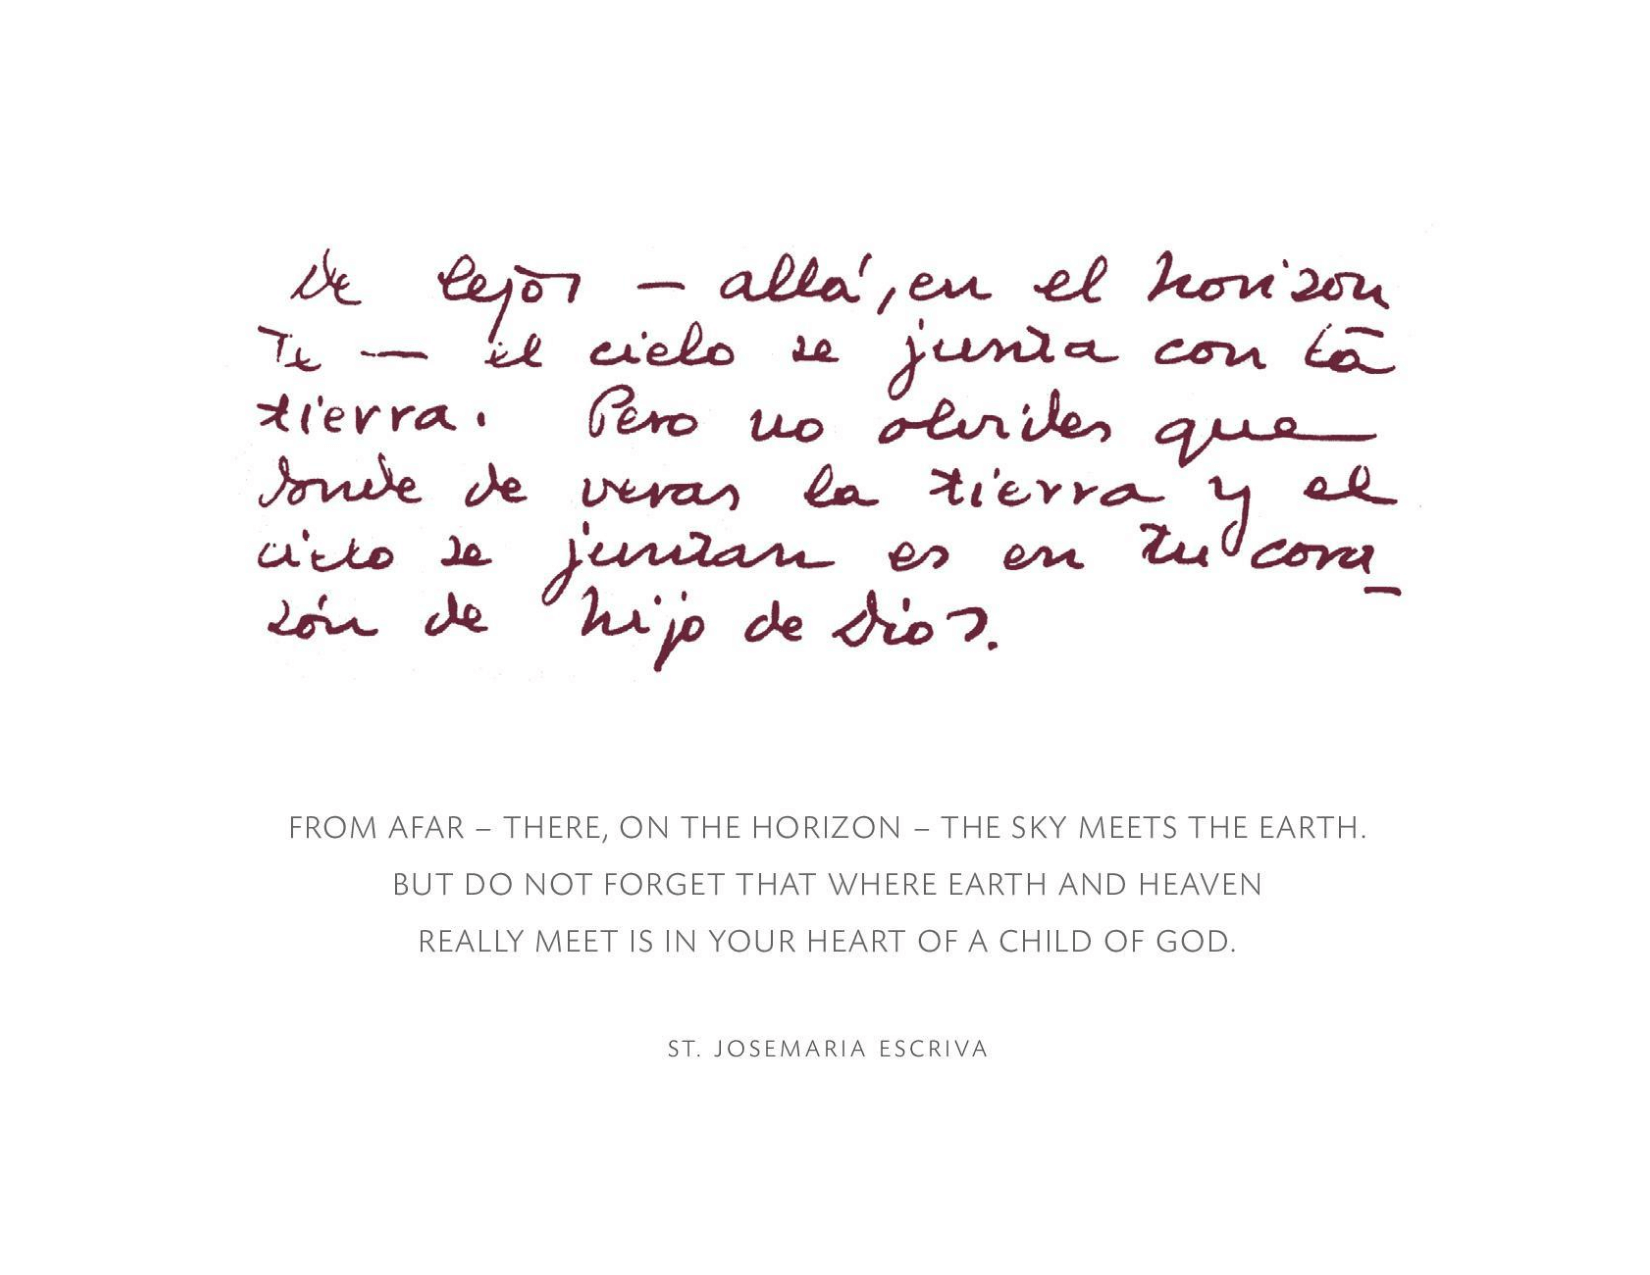 De lejos – allá, en el horizon
te – el cielo se junta con la
tierra. Pero no olvides que
donde de veras la tierra y el
cielo se juntan es en tu cora-
zón de hijo de Dios.
FROM AFAR – THERE, ON THE HORIZON – THE SKY MEETS THE EARTH.
BUT DO NOT FORGET THAT WHERE EARTH AND HEAVEN
REALLY MEET IS IN YOUR HEART OF A CHILD OF GOD.
ST. JOSEMARIA ESCRIVA